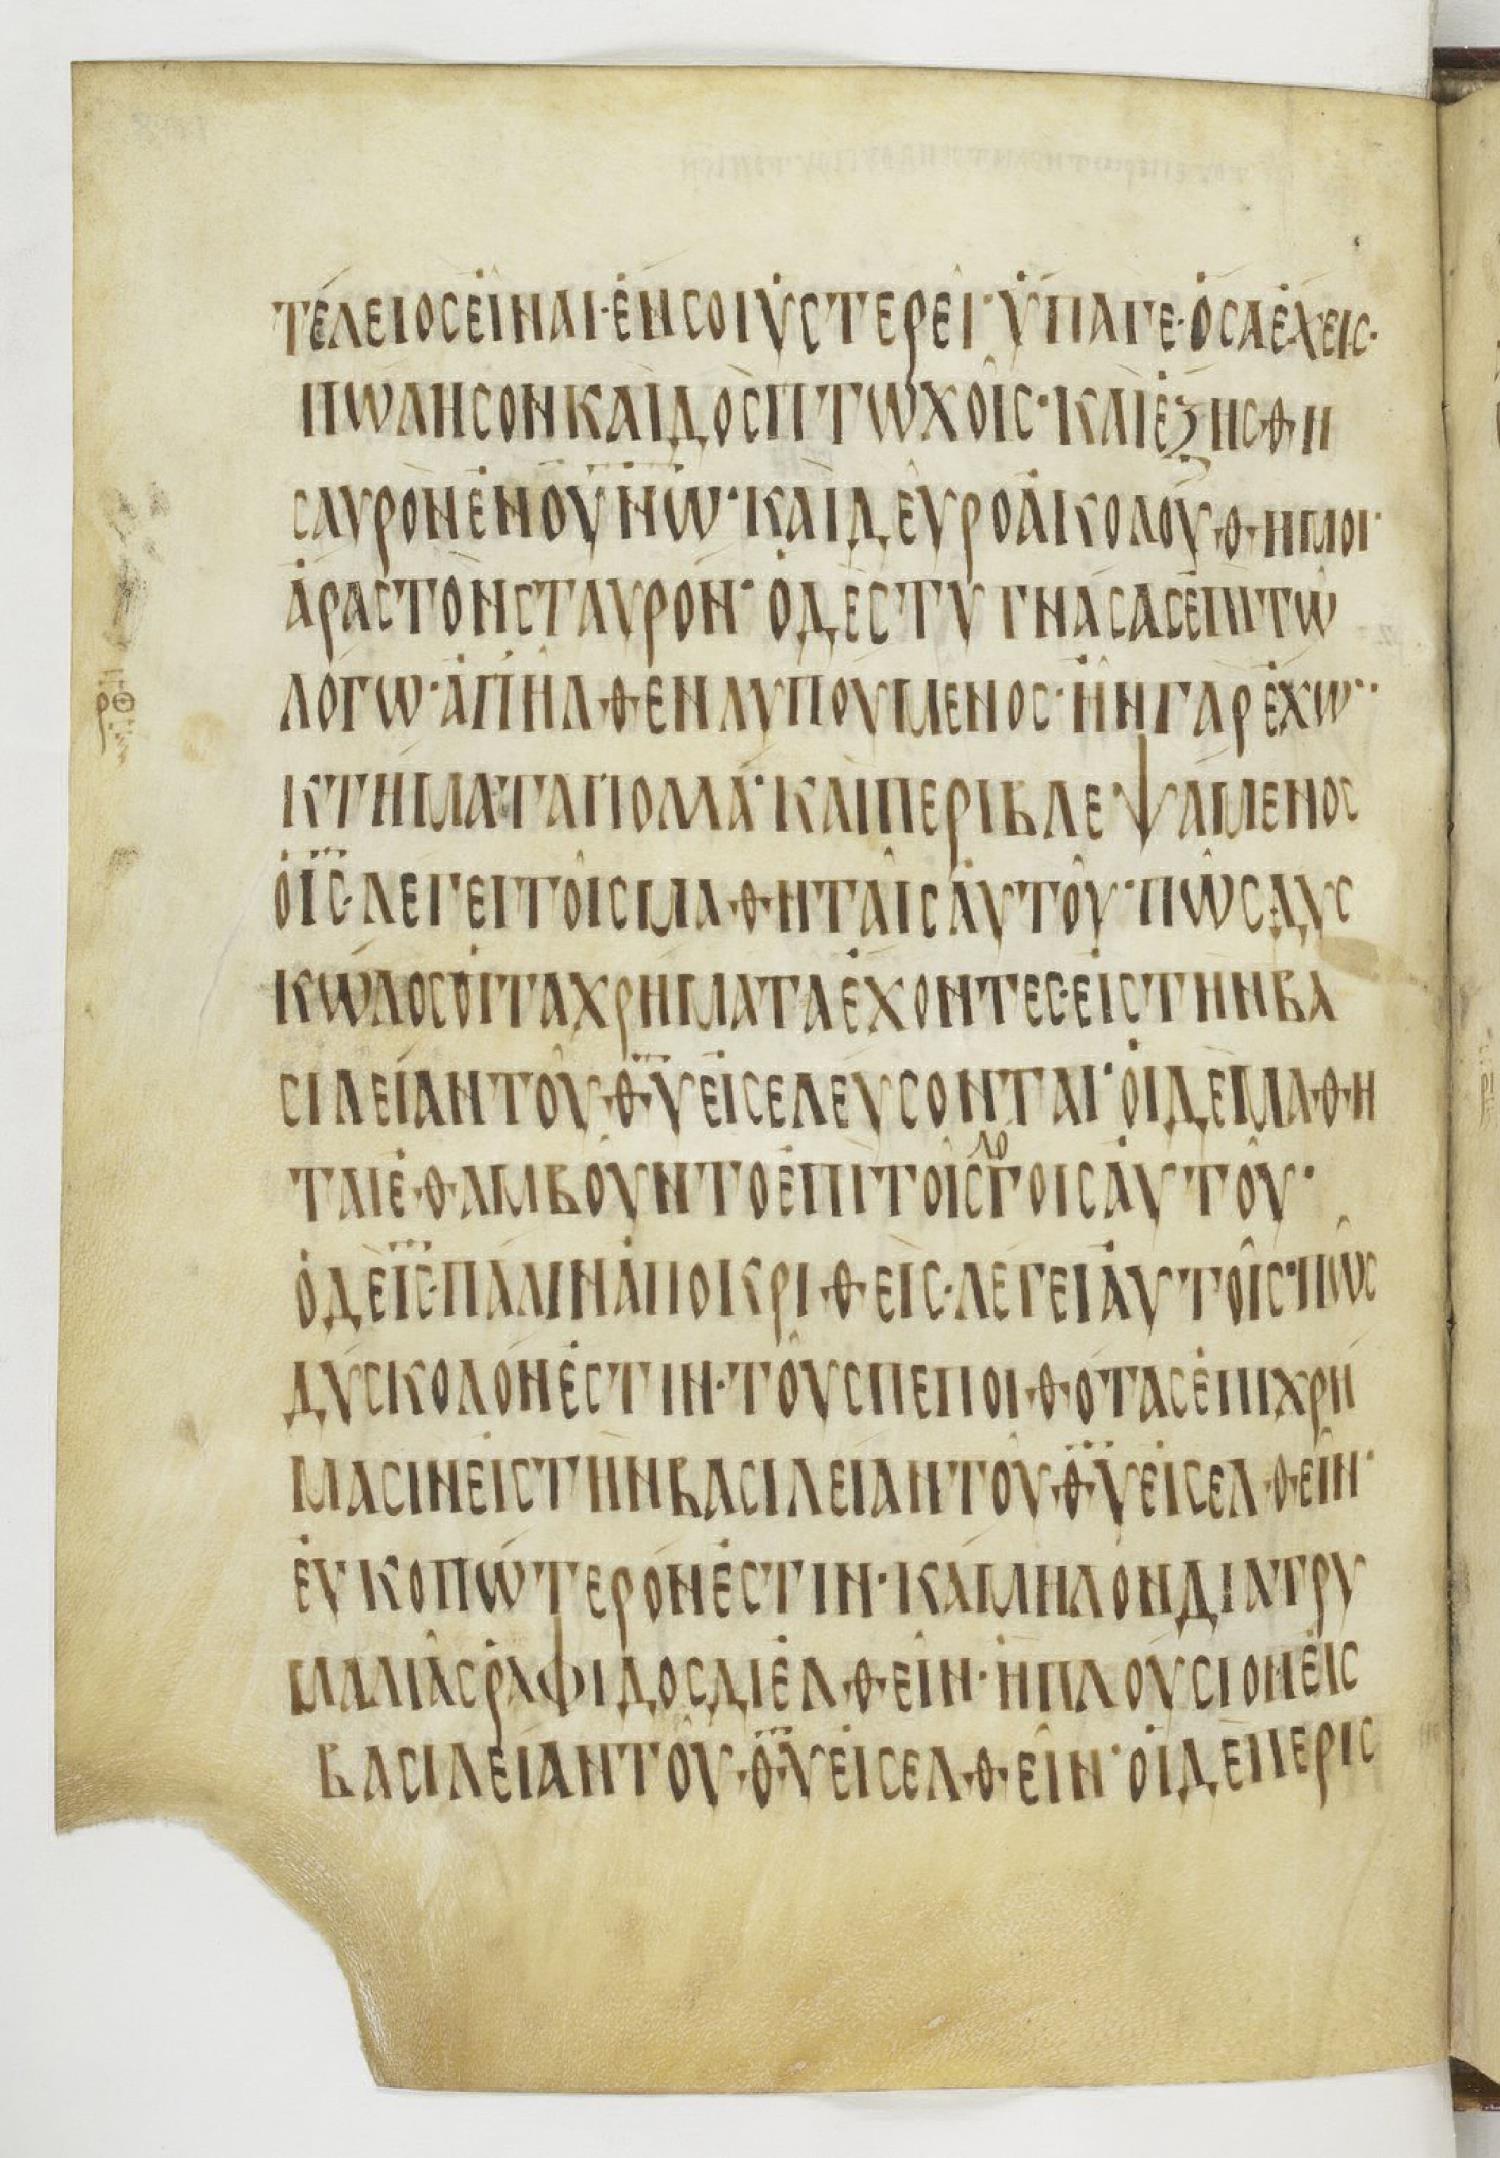 ΤΕΛΕΙΟΣ ΕἾΝΑΙ· ἘΝ ΣΟΙ ὙΣΤΕΡΕΙ͂· ὝΠΑΓΕ· ὉΣΑ ἘΧΕΙΣ·
ΠΩΛΗΣΟΝ ΚΑῚ ΔῸΣ ΠΤΩΧΟΙ͂Σ· ΚΑῚ ἘΞΗΣ ΘΗ
ΣΑΥΡΟΝ ἘΝ ΟΥ̅Ν̅Ω̅· ΚΑῚ ΔΕΥ͂ΡΟ ἈΚΟΛΟΎΘΗ ΜΟΙ·
ἈΡΑΣ ΤῸΝ ΣΤΑΥΡΌΝ· Ὁ ΔῈ ΣΤΥΓΝΆΣΑΣ ἘΠῚ ΤΩ͂
ΛΌΓΩ· ἈΠΗ͂ΛΘΕΝ ΛΥΠΟΎΜΕΝΟΣ· ἮΝ ΓᾺΡ ἘΧΩ̅
ΚΤΉΜΑΤΑ ΠΟΛΛΆ· ΚΑῚ ΠΕΡΙΒΛΕΨΆΜΕΝΟΣ
Ὁ Ι̅Σ̅· ΛΈΓΕΙ ΤΟΙ͂Σ ΜΑΘΗΤΑΙ͂Σ ἈΥΤΟΥ͂· ΠΩ͂Σ ΔΥΣ
ΚΌΛΟΣ ὉΙ ΤᾺ ΧΡΉΜΑΤΑ ἘΧΟΝΤΕΣ· ἘΙΣ ΤῊΝ ΒΑ
ΣΙΛΕΊΑΝ ΤΟΥ͂ Θ̅Υ̅ ἘΙΣΕΛΕΎΣΟΝΤΑΙ· ὉΙ ΔῈ ΜΑΘΗ
ΤΑΙ ἘΘΑΜΒΟΥ͂ΝΤΟ ἘΠῚ ΤΟΙ͂Σ ΛΌΓΟΙΣ ἈΥΤΟΥ͂·
Ὁ ΔῈ Ι̅Σ̅· ΠΆΛΙΝ ἈΠΟΚΡΙΘΕΙΣ· ΛΈΓΕΙ ἈΥΤΟΙ͂Σ· ΠΩ͂Σ
ΔΎΣΚΟΛΟΝ ἘΣΤΙΝ· ΤΟΥΣ ΠΕΠΟΙΘΟΤΑΣ ἘΠῚ ΧΡΉ
ΜΑΣΙΝ ἘΙΣ ΤῊΝ ΒΑΣΙΛΕΊΑΝ ΤΟΥ͂ Θ̅Υ̅ ἘΙΣΕΛΘΕΙ͂Ν·
ἘΥΚΟΠΏΤΕΡΟΝ ἘΣΤΙΝ· ΚΆΜΗΛΟΝ ΔΙᾺ ΤΡΥ
ΜΑΛΙΑ͂Σ ῬΑΦΊΔΟΣ ΔΙΕΛΘΕΙ͂Ν· Ἢ ΠΛΟΎΣΙΟΝ ἘΙΣ
ΒΑΣΙΛΕΊΑΝ ΤΟΥ͂ Θ̅Υ̅ ἘΙΣΕΛΘΕΙ͂Ν· ὉΙ ΔῈ ΠΕΡΙΣ